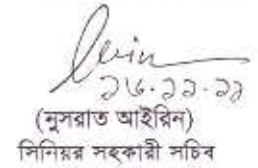 ২৬.১১.১১
(নুসরাত আইরিন)
সিনিয়র সহকারী সচিব